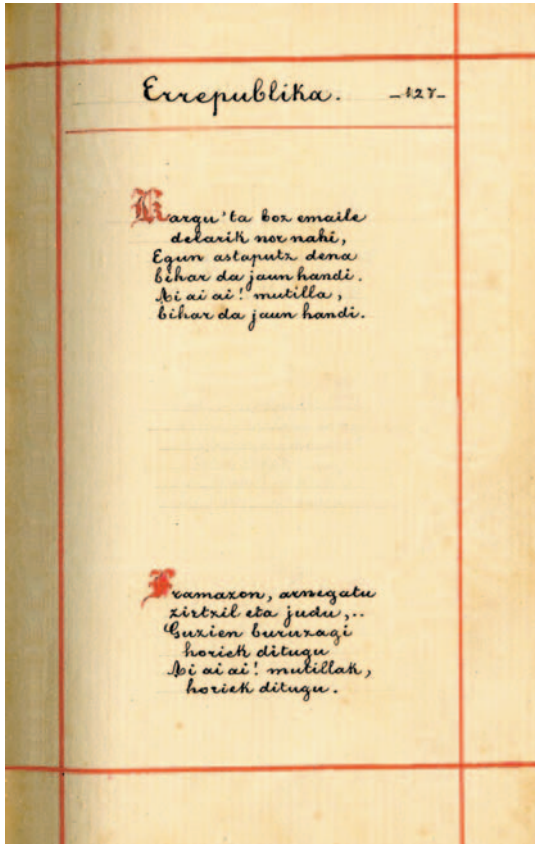 Errepublika. -127-
Kargu'ta boz emaile
delarik nor nahi,
Egun astaputz dena
bihar da jaun handi.
Ai ai ai! mutilla,
bihar da jaun handi.
Framazon, arnegatu
zirtzil eta judu,..
Guzien buruzagi
horiek ditugu
Ai ai ai! mutillak,
horiek ditugu.